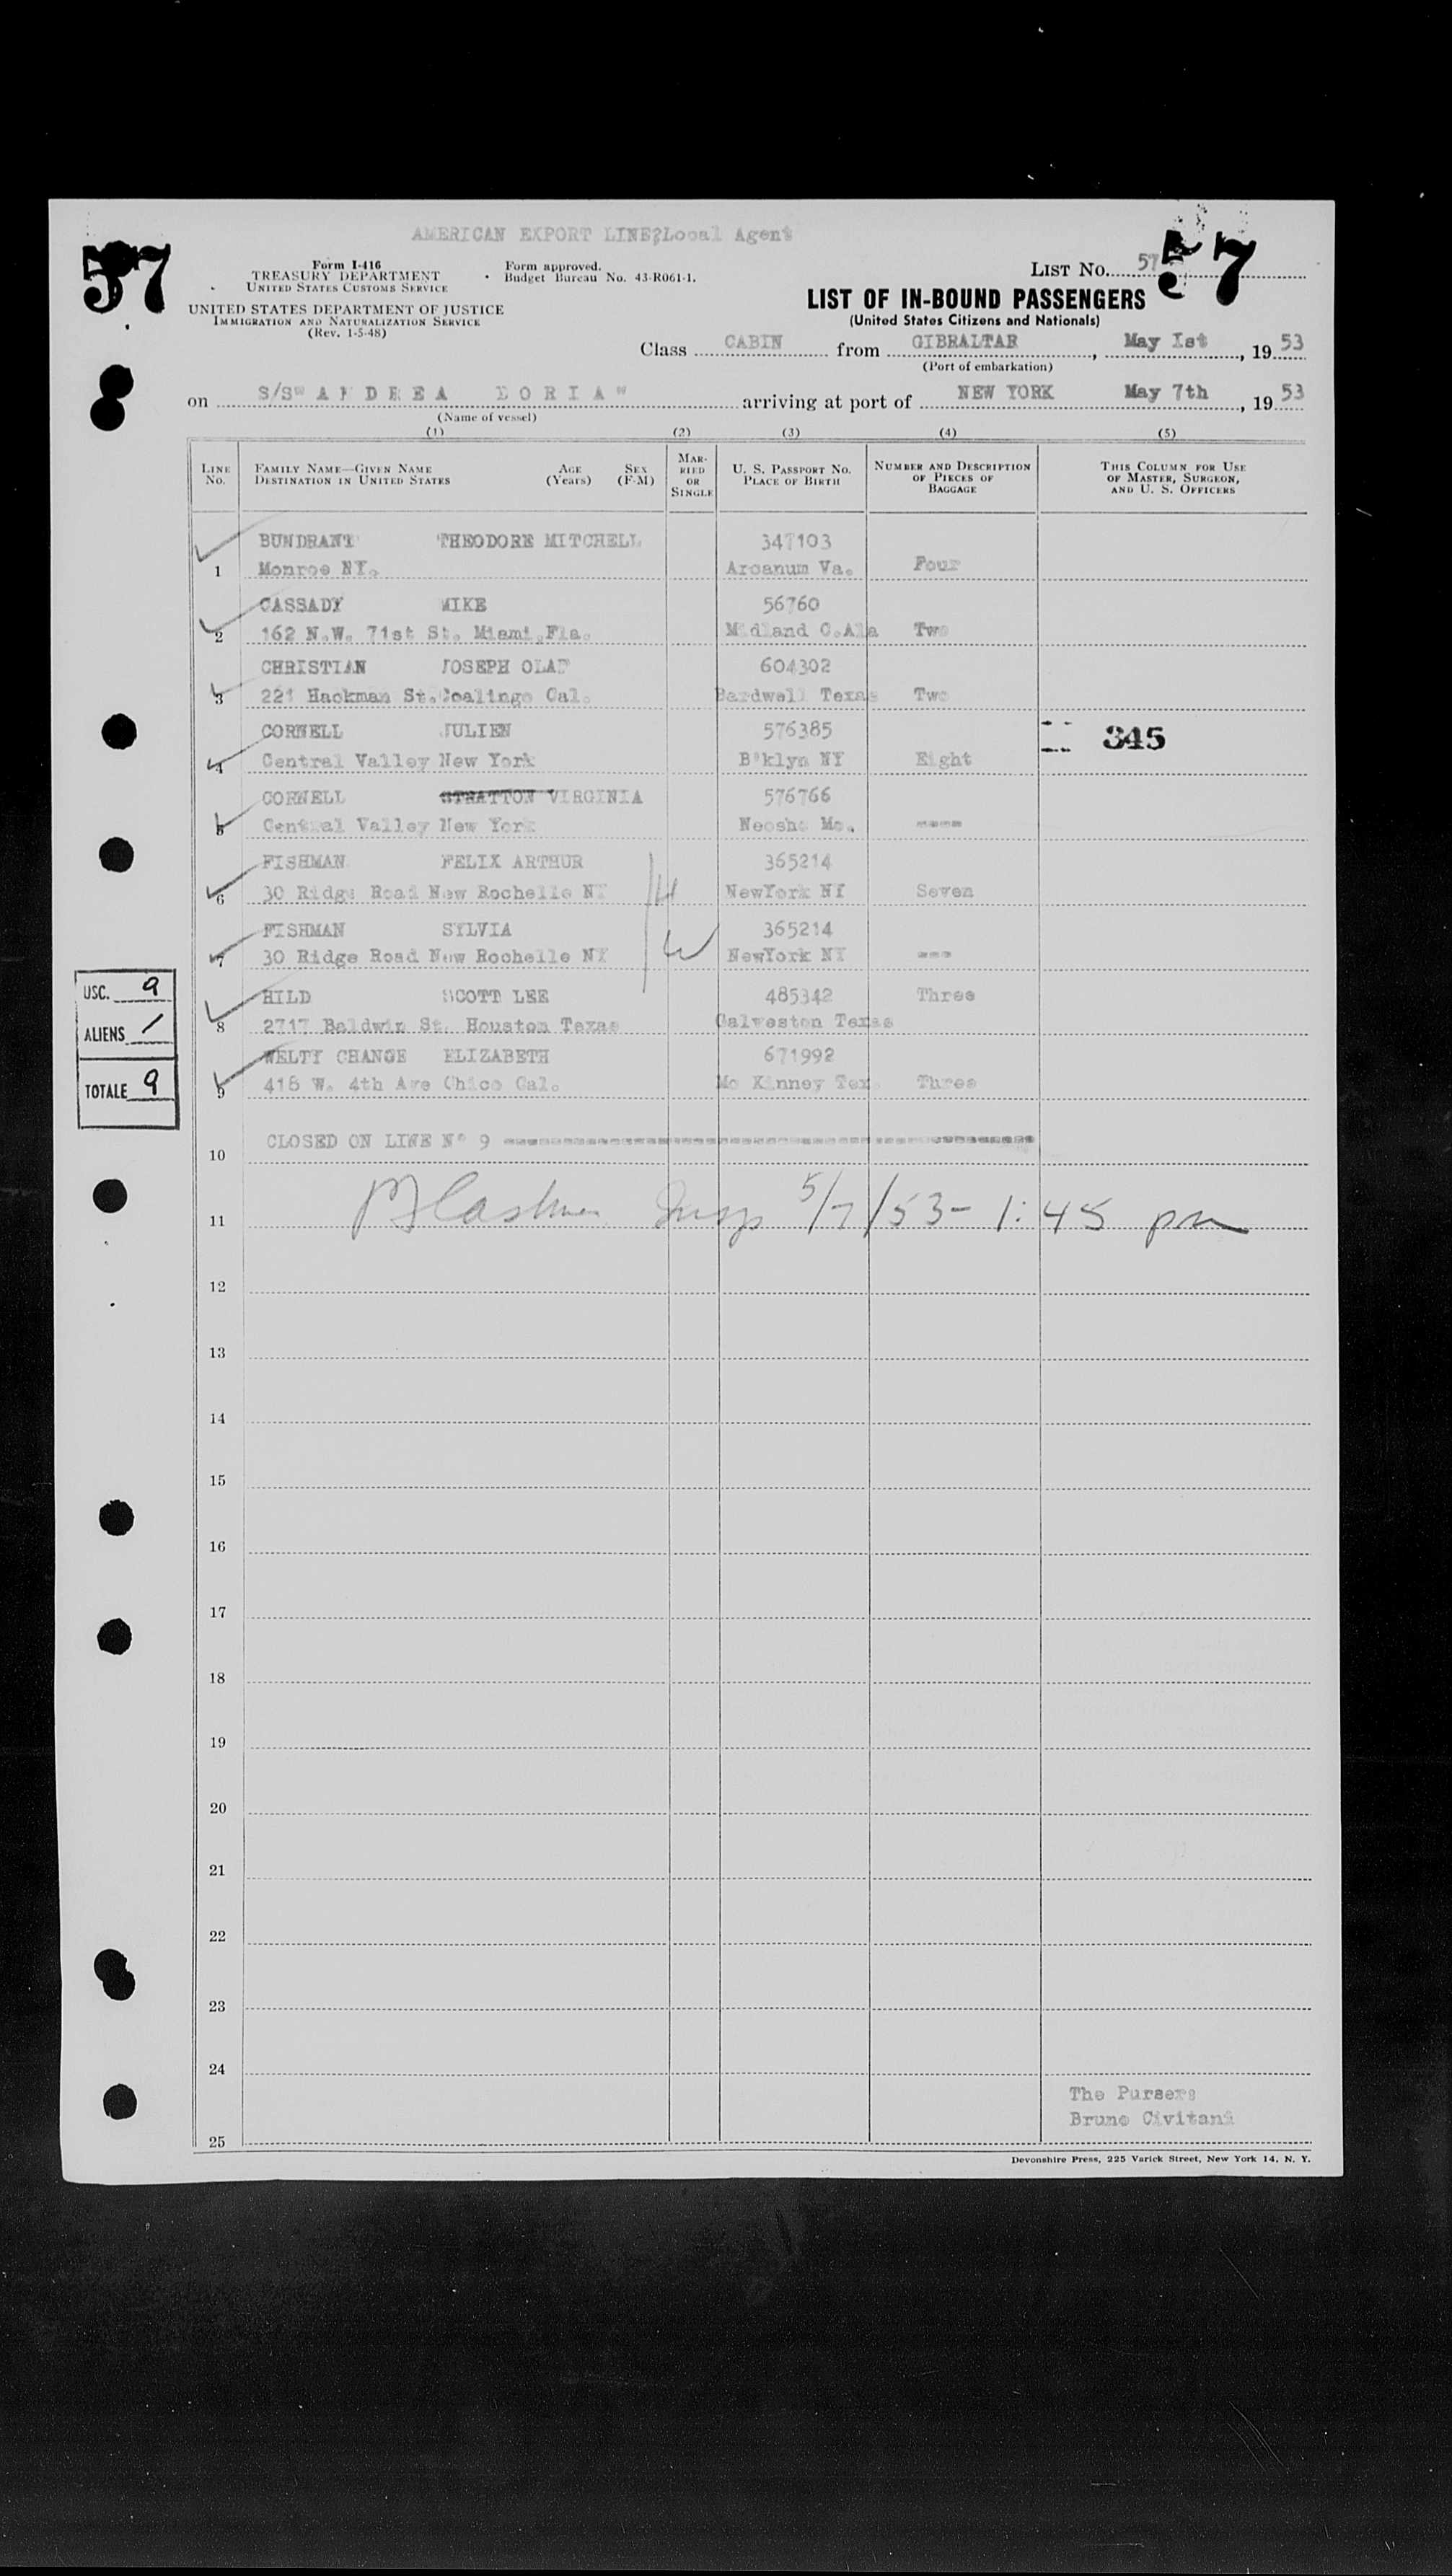 AMERICAN EXPORT LINE?Local Agent
57
Form I-416
TREASURY DEPARTMENT
UNITED STATES CUSTOMS SERVICE
UNITED STATES DEPARTMENT OF JUSTICE
IMMIGRATION AND NATURALIZATION SERVICE
(Rev. 1-5-48)
Form approved.
Budget Bureau No. 43-R061-1.
LIST NO. 57
57
LIST OF IN-BOUND PASSENGERS
(United States Citizens and Nationals)
Class CABIN from GIBRALTAR, May Ist, 1953
(Port of embarkation)
on S/S" ANDREA DORIA" arriving at port of NEW YORK May 7th, 1953
(Name of vessel)
(1) (2) (3) (4) (5)
LINE No. FAMILY NAME—GIVEN NAME DESTINATION IN UNITED STATES AGE (Years) SEX (F-M) MARRIED OR SINGLE U. S. PASSPORT NO. PLACE OF BIRTH NUMBER AND DESCRIPTION OF PIECES OF BAGGAGE THIS COLUMN FOR USE OF MASTER, SURGEON, AND U. S. OFFICERS
BUNDRANT THEODORE MITCHELL 347103
1 Monroe NY. Arcanum Va. Four
CASSADY MIKE 56760
2 162 N.W. 71st St. Miami,Fla. Midland C.Ala Two
CHRISTIAN JOSEPH OLAF 604302
3 221 Hackman St.Coalingo Cal. Bardwell Texas Two
CORNELL JULIEN 576385 345
4 Central Valley New York B'klyn NY Eight
CORNELL STRATTON VIRGINIA 576766
5 Central Valley New York Neosho Mo. ----
FISHMAN FELIX ARTHUR 365214
6 30 Ridge Road New Rochelle NY H NewYork NY Seven
FISHMAN SYLVIA 365214
7 30 Ridge Road New Rochelle NY W NewYork NY ---
HILD SCOTT LEE 485342 Three
8 2717 Baldwin St. Houston Texas Galveston Texas
WELTY CHANGE ELIZABETH 671992
9 418 W. 4th Ave Chico Cal. Mc Kinney Tex. Three
USC. 9
ALIENS /
TOTALE 9
CLOSED ON LINE N° 9
10
11 Insp 5/7/53- 1:45 pm
12
13
14
15
16
17
18
19
20
21
22
23
24
The Pursers
Bruno Civitani
25
Devonshire Press, 225 Varick Street, New York 14, N. Y.